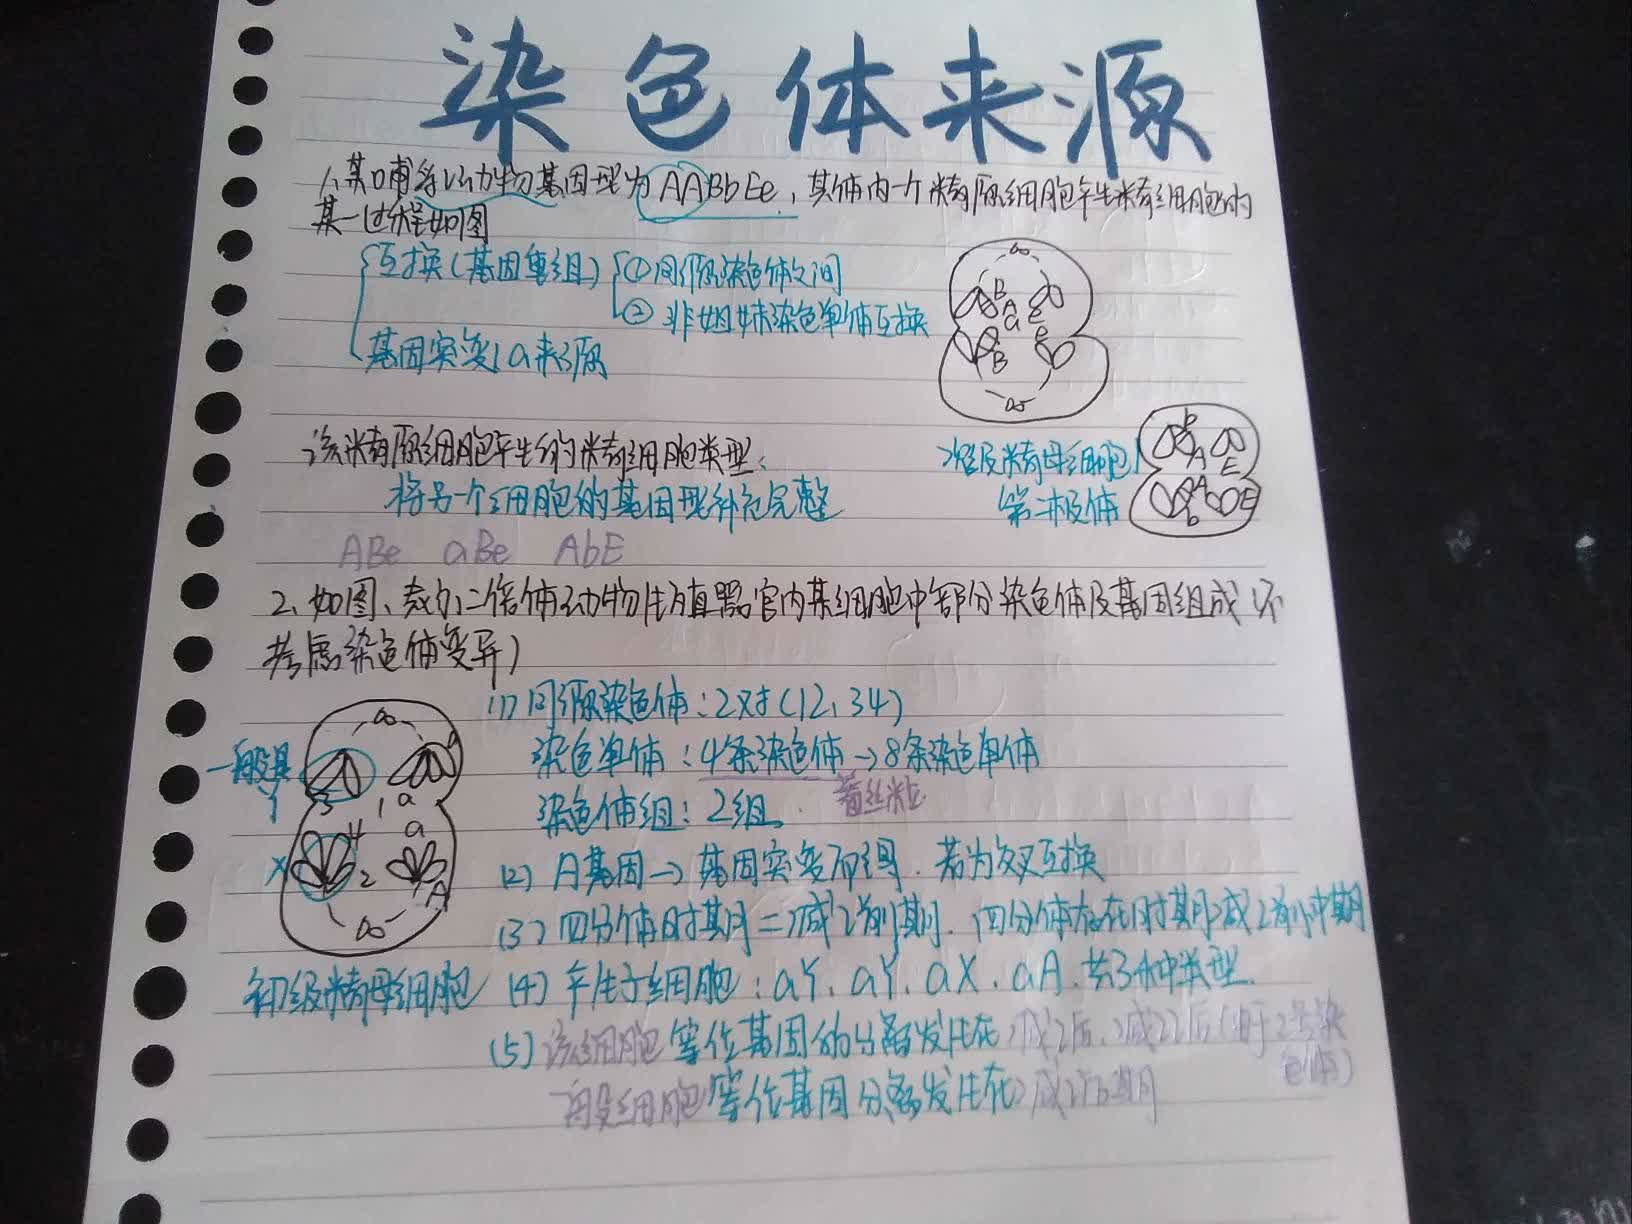 染色体来源
1、某哺乳动物基因型为AABbEe，其体内一个精原细胞产生精细胞的
某一过程如图
互换（基因重组）①同源染色体之间
②非姐妹染色单体互换
基因突变）a来源
B
A
a
e
e
B
该精原细胞产生的精细胞类型：
将另一个细胞的基因型补充完整
次级精母细胞
第二极体
b
A
E
A
b
E
ABe aBe AbE
2、如图、表示二倍体动物生殖器官内某细胞中部分染色体及基因组成（不
考虑染色体变异）
(1)同源染色体：2对（12、34）
一般是
Y
染色单体：4条染色体→8条染色单体
看着丝粒
染色体组：2组
3
1
a
4
a
X
2
A
(2) A基因→基因突变而得．若为交叉互换
(3) 四分体时期=减1前期．四分体存在时期减1前、中期
初级精母细胞
(4) 产生子细胞：aY、aY、aX、aA．共3种类型
(5) 该细胞等位基因的分离发生在减1后、减2后（由于2号染
色体）
一般细胞等位基因分离发生在减1后期